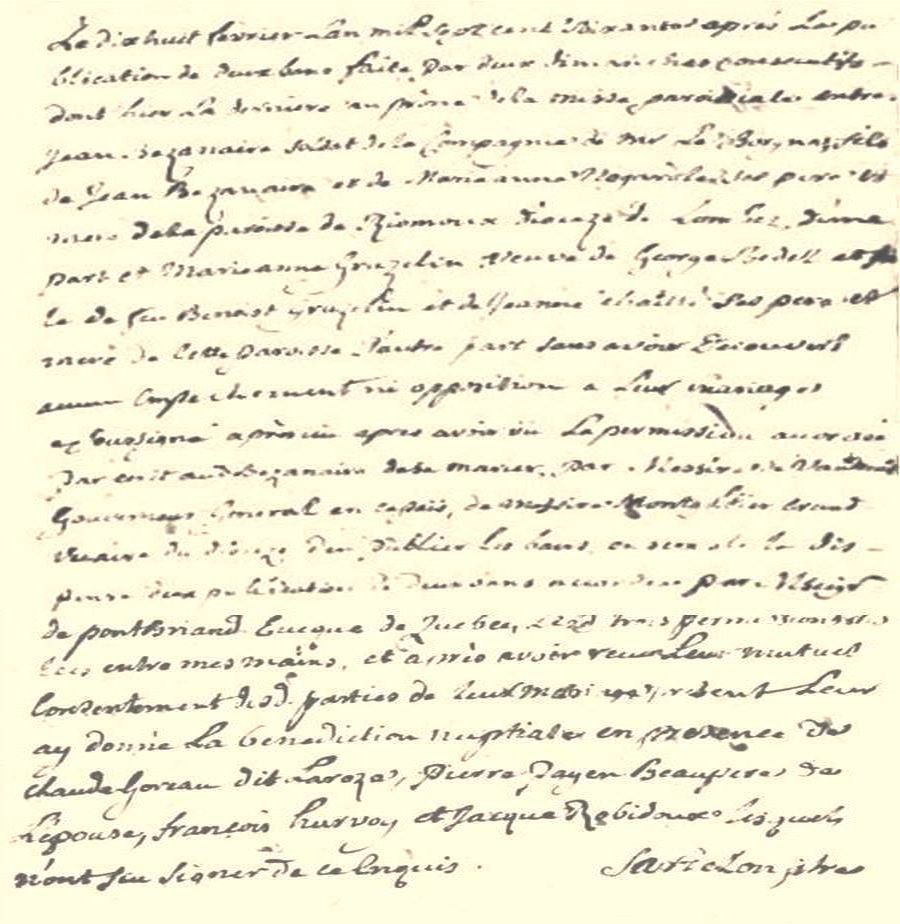 Le dixhuit fevrier L'an mil sept cent soixante après La pu
blication de deux bans faite par deux dimanches consecutifs -
dont hier La derniere au prône de la messe paroissiale entre
Jean Bezanaire soldat de la Compagnie de mr Le fils
de Jean Bezanaire et de Marie anne ses pere et
mere de la paroisse de Riomoux diocèze de Lombez d'une
part et Marie anne Gruzelin veuve de George Bedell et fil
le de feu Benoist Gruzelin et de Jeanne ses pere et
mere de cette paroisse d'autre part sans avoir decouvert
aucun Empechement ni opposition a Leur mariage
je soussigné après avoir vu La permission accordée
par ecrit aud Bezanaire de se marier par Messire de
Gouverneur General en ce païs, de messire Montgolfier Grand
vicaire du diocèze d'en publier les bans, ensemble la dis -
pense d'une publication de deux bans accordée par Mseigr
de pontBriand Eveque de Quebec, lesd trois permissions
entre mes mains, et après avoir receu Leur mutuel
Consentement desd. parties de leur present Leur
ay donné La benediction nuptiale en presence de
Claude Goreau dit Laroze, Pierre Payen Beaupere de
L'epouse, françois hurvoy et Jacque Robidoux lesquels
n'ont sceu signer de ce Enquis. Sartelon ptre